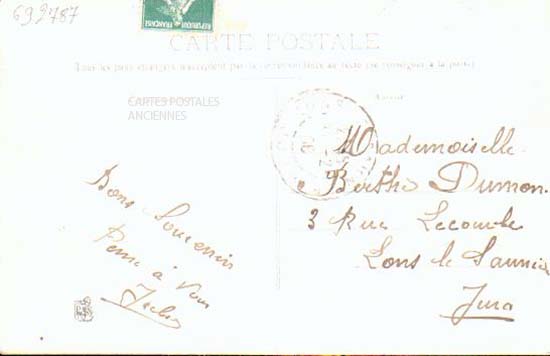 692787
RÉPUBLIQUE FRANÇAISE
CARTE POSTALE
Tous les pays étrangers n'acceptent pas la correspondance au recto (se renseigner à la poste)
CARTES POSTALES
ANCIENNES
Bons Souvenirs
Pense à vous
Mademoiselle
Berthe Dumon
3 Rue Lecourbe
Lons le Saunier
Jura